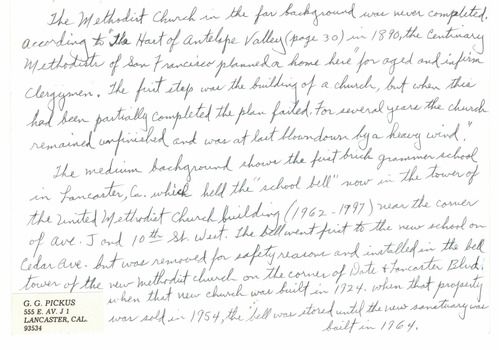 The Methodist Church in the far background was never completed.
according to "The Hart of Antelope Valley (page 30) in 1890, the Centinary
Methodists of San Francisco planned a home here" for aged and infirm
Clergymen. The first step was the building of a church, but when this
had been partially completed the plan failed. For several years the church
remained unfinished and was at last blowndown by a heavy wind."
The medium background shows the first brick grammer school
in Lancaster, Ca. which held the "school bell" now in the tower of
the United Methodist Church building (1962-1997) near the corner
of Ave. J and 10th St. West. The bell went first to the new school on
Cedar Ave. but was removed for safety reasons and installed in the bell
tower of the new Methodist church on the corner of Date & Lancaster Blvd.
when that new church was built in 1924. when that property
was sold in 1954, the bell was stored until the new sanctuary was
built in 1964.
G. G. PICKUS
555 E. AV. J 1
LANCASTER, CAL.
93534